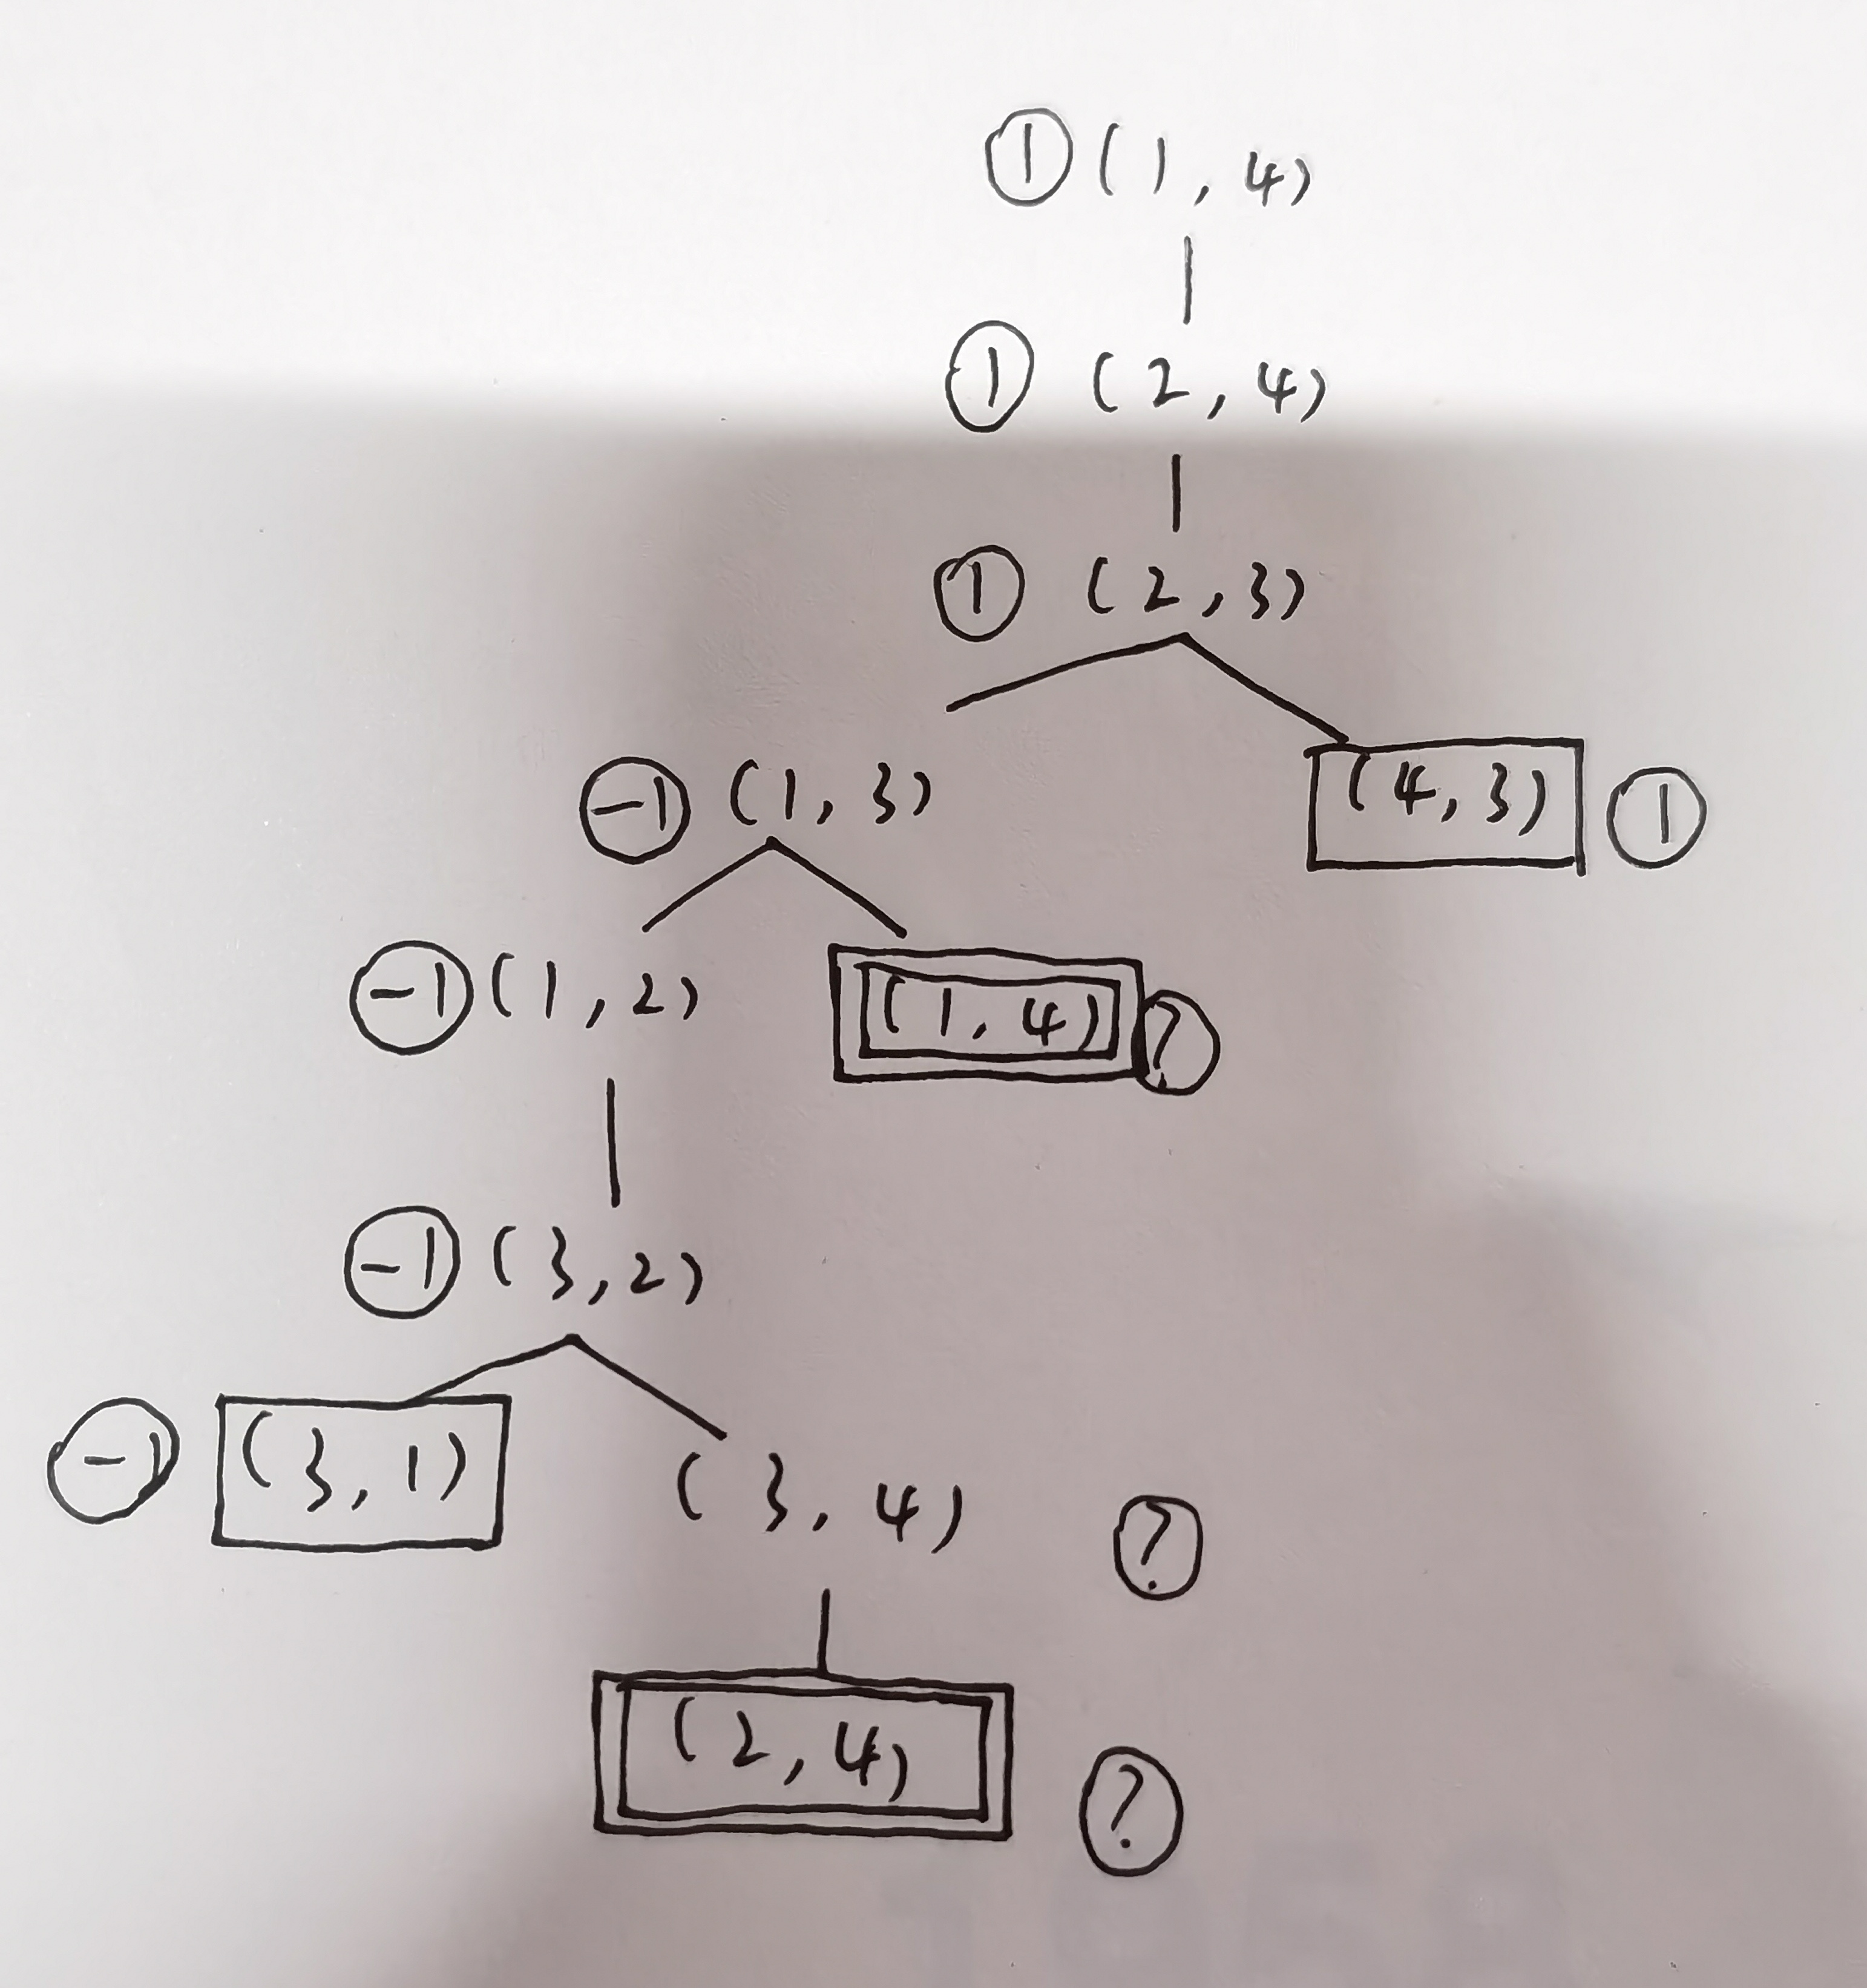 ① (1, 4)
① (2, 4)
① (2, 3)
-1 (1, 3)
(4, 3) ①
-1 (1, 2)
(1, 4) ?
-1 (3, 2)
-1 (3, 1)
(3, 4) ?
(2, 4) ?